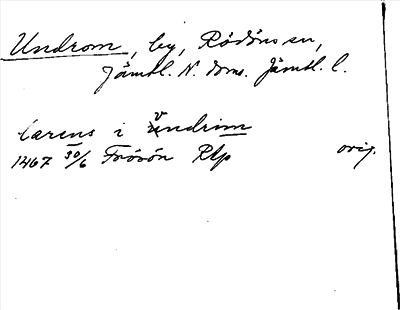 Undrom, by, Rödöns sn,
Jämtl. N. doms. Jämtl. l.
larens i vndrim
1467 30/6 Frösön RAp orig.